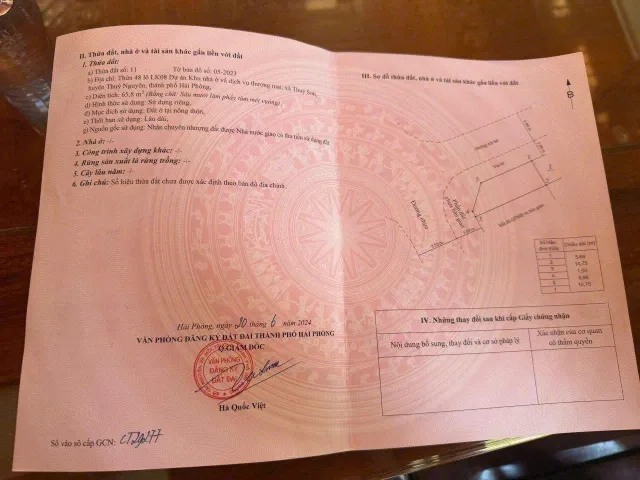 II. Thửa đất, nhà ở và tài sản khác gắn liền với đất
1. Thửa đất:
a) Thửa đất số: 11 Tờ bản đồ số: 05-2023
b) Địa chỉ: Thửa 48 lô LK08 Dự án Khu nhà ở và dịch vụ thương mại, xã Thuỷ Sơn,
huyện Thuỷ Nguyên, thành phố Hải Phòng,
c) Diện tích: 65,8 m² (bằng chữ: Sáu mươi lăm phẩy tám mét vuông)
d) Hình thức sử dụng: Sử dụng riêng,
đ) Mục đích sử dụng: Đất ở tại nông thôn,
e) Thời hạn sử dụng: Lâu dài,
g) Nguồn gốc sử dụng: Nhận chuyển nhượng đất được Nhà nước giao có thu tiền sử dụng đất
2. Nhà ở: -/-
3. Công trình xây dựng khác: -/-
4. Rừng sản xuất là rừng trồng: -/-
5. Cây lâu năm: -/-
6. Ghi chú: Số hiệu thửa đất chưa được xác định theo bản đồ địa chính.
Hải Phòng, ngày 20 tháng 6 năm 2024
VĂN PHÒNG ĐĂNG KÝ ĐẤT ĐAI THÀNH PHỐ HẢI PHÒNG
Q.GIÁM ĐỐC
VĂN PHÒNG
ĐĂNG KÝ
ĐẤT ĐAI
Hà Quốc Việt
Số vào sổ cấp GCN:
III. Sơ đồ thửa đất, nhà ở và tài sản khác gắn liền với đất
B
Đường
Số hiệu
đỉnh thửa
Chiều dài (m)
1
2
3
4
5
1
IV. Những thay đổi sau khi cấp Giấy chứng nhận
Nội dung bổ sung, thay đổi và cơ sở pháp lý
Xác nhận của cơ quan
có thẩm quyền